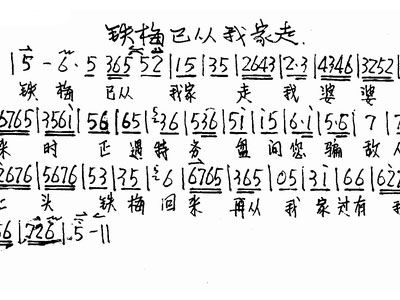 铁梅已从我家走.
| 5 - 6 · 5 365 52 | 15 | 35 | 2643 | 2·3 | 4346 | 3252 |
铁 梅 已从 我家 走 我 婆 婆
6765 | 3561 | 56 | 65 | 36 | 536 | 51 | 15 | 6·1 | 5·6 | 7 | 7
来 时 正 遇 特 务 盘 问 您 骗 敌 人
2676 | 5676 | 53 | 35 | 6 | 6765 | 365 | 05 | 31 | 66 | 622
头 铁 梅 回 来 再从 我 家 过 有 我
56 | 726 | 5 - ||